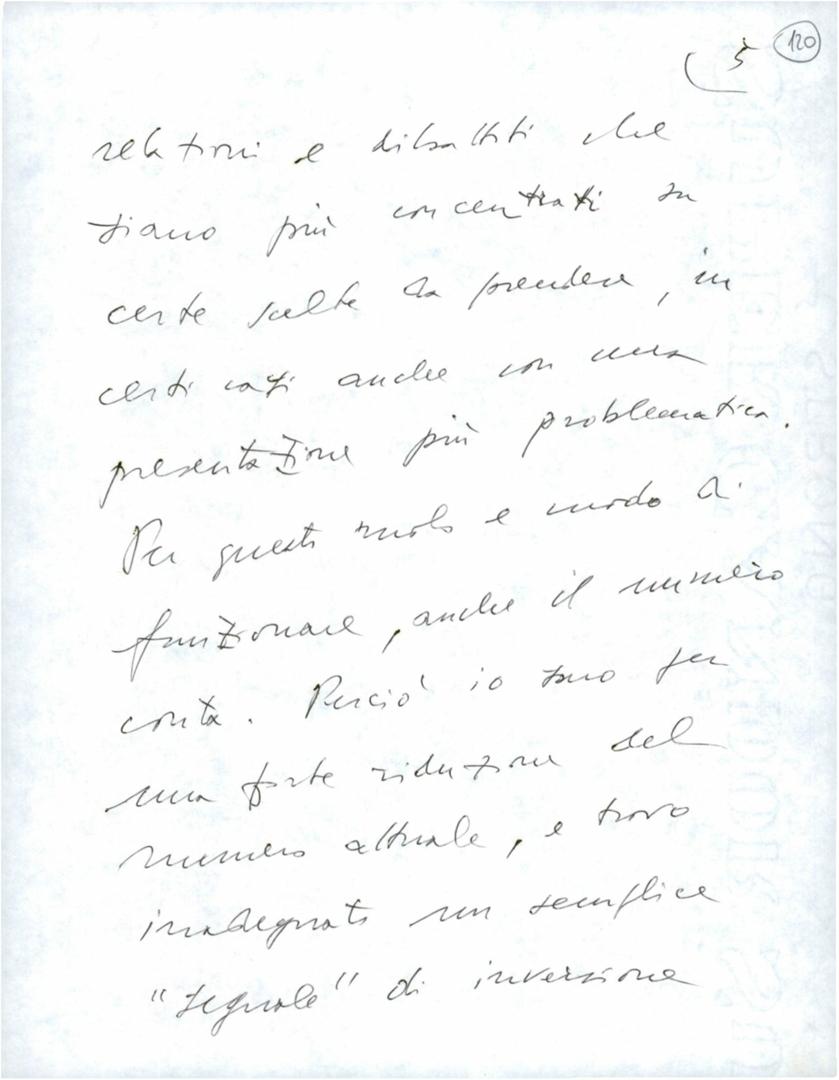 5 120
relazioni e dibattiti che
siano più concentrati su
certe scelte da prendere, in
certi casi anche con una
presentazione più problematica.
Per questo ruolo e modo di
funzionare, anche il numero
conta. Perciò io sono per
una forte riduzione del
numero attuale, e trovo
inadeguato un semplice
"segnale" di inversione